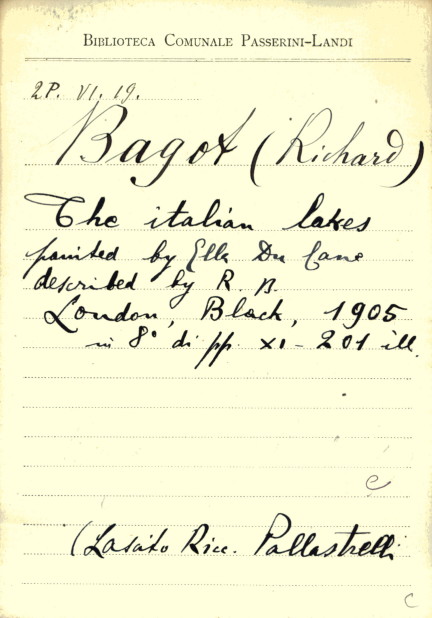 BIBLIOTECA COMUNALE PASSERINI-LANDI
2P. VI. 19.
Bagot (Richard)
The italian lakes
painted by Ella Du Cane
described by R. B.
London, Black, 1905
in 8° di pp. XI-201 ill.
e
(Lascito Ric. Pallastrelli
c